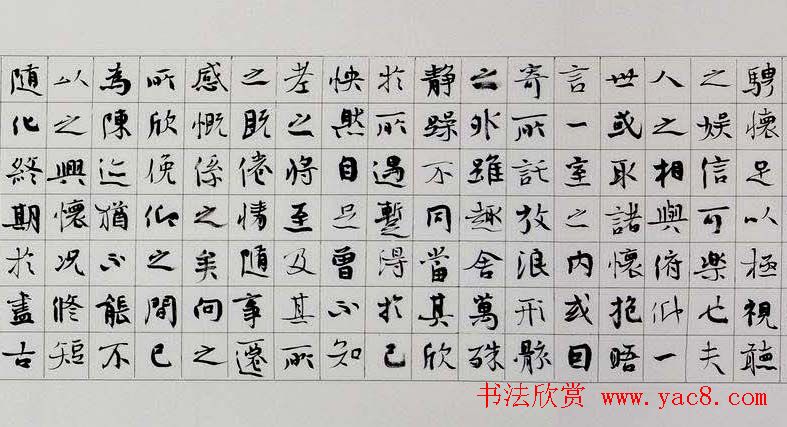 騁懷足以極視聽
之娛信可樂也夫
人之相與俯仰一
世或取諸懷抱晤
言一室之内或因
寄所託放浪形骸
之外雖趣舍萬殊
静躁不同當其欣
於所遇暫得於己
怏然自足曾不知
老之將至及其所
之既倦情随事遷
感慨係之矣向之
所欣俛仰之間已
為陳迹猶不能不
以之興懷況修短
随化終期於盡古
书法欣赏 www.yac8.com